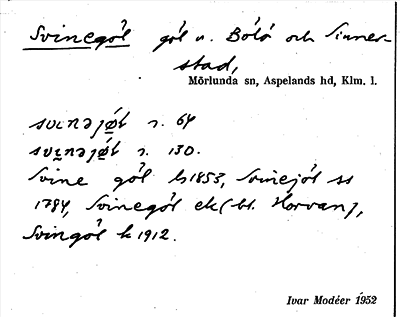 Svinegöl göl u. Bölö och Sinner-
stad,
Mörlunda sn, Aspelands hd, Klm. l.
svɩnəjø̱l s. 64
svɩ̱nəjø̱l s. 130.
Svine göl ls 1853, Svinejöl ss
1784, Svinegöl ek (bl. Horvan),
Svingöl k 1912.
Ivar Modéer 1952